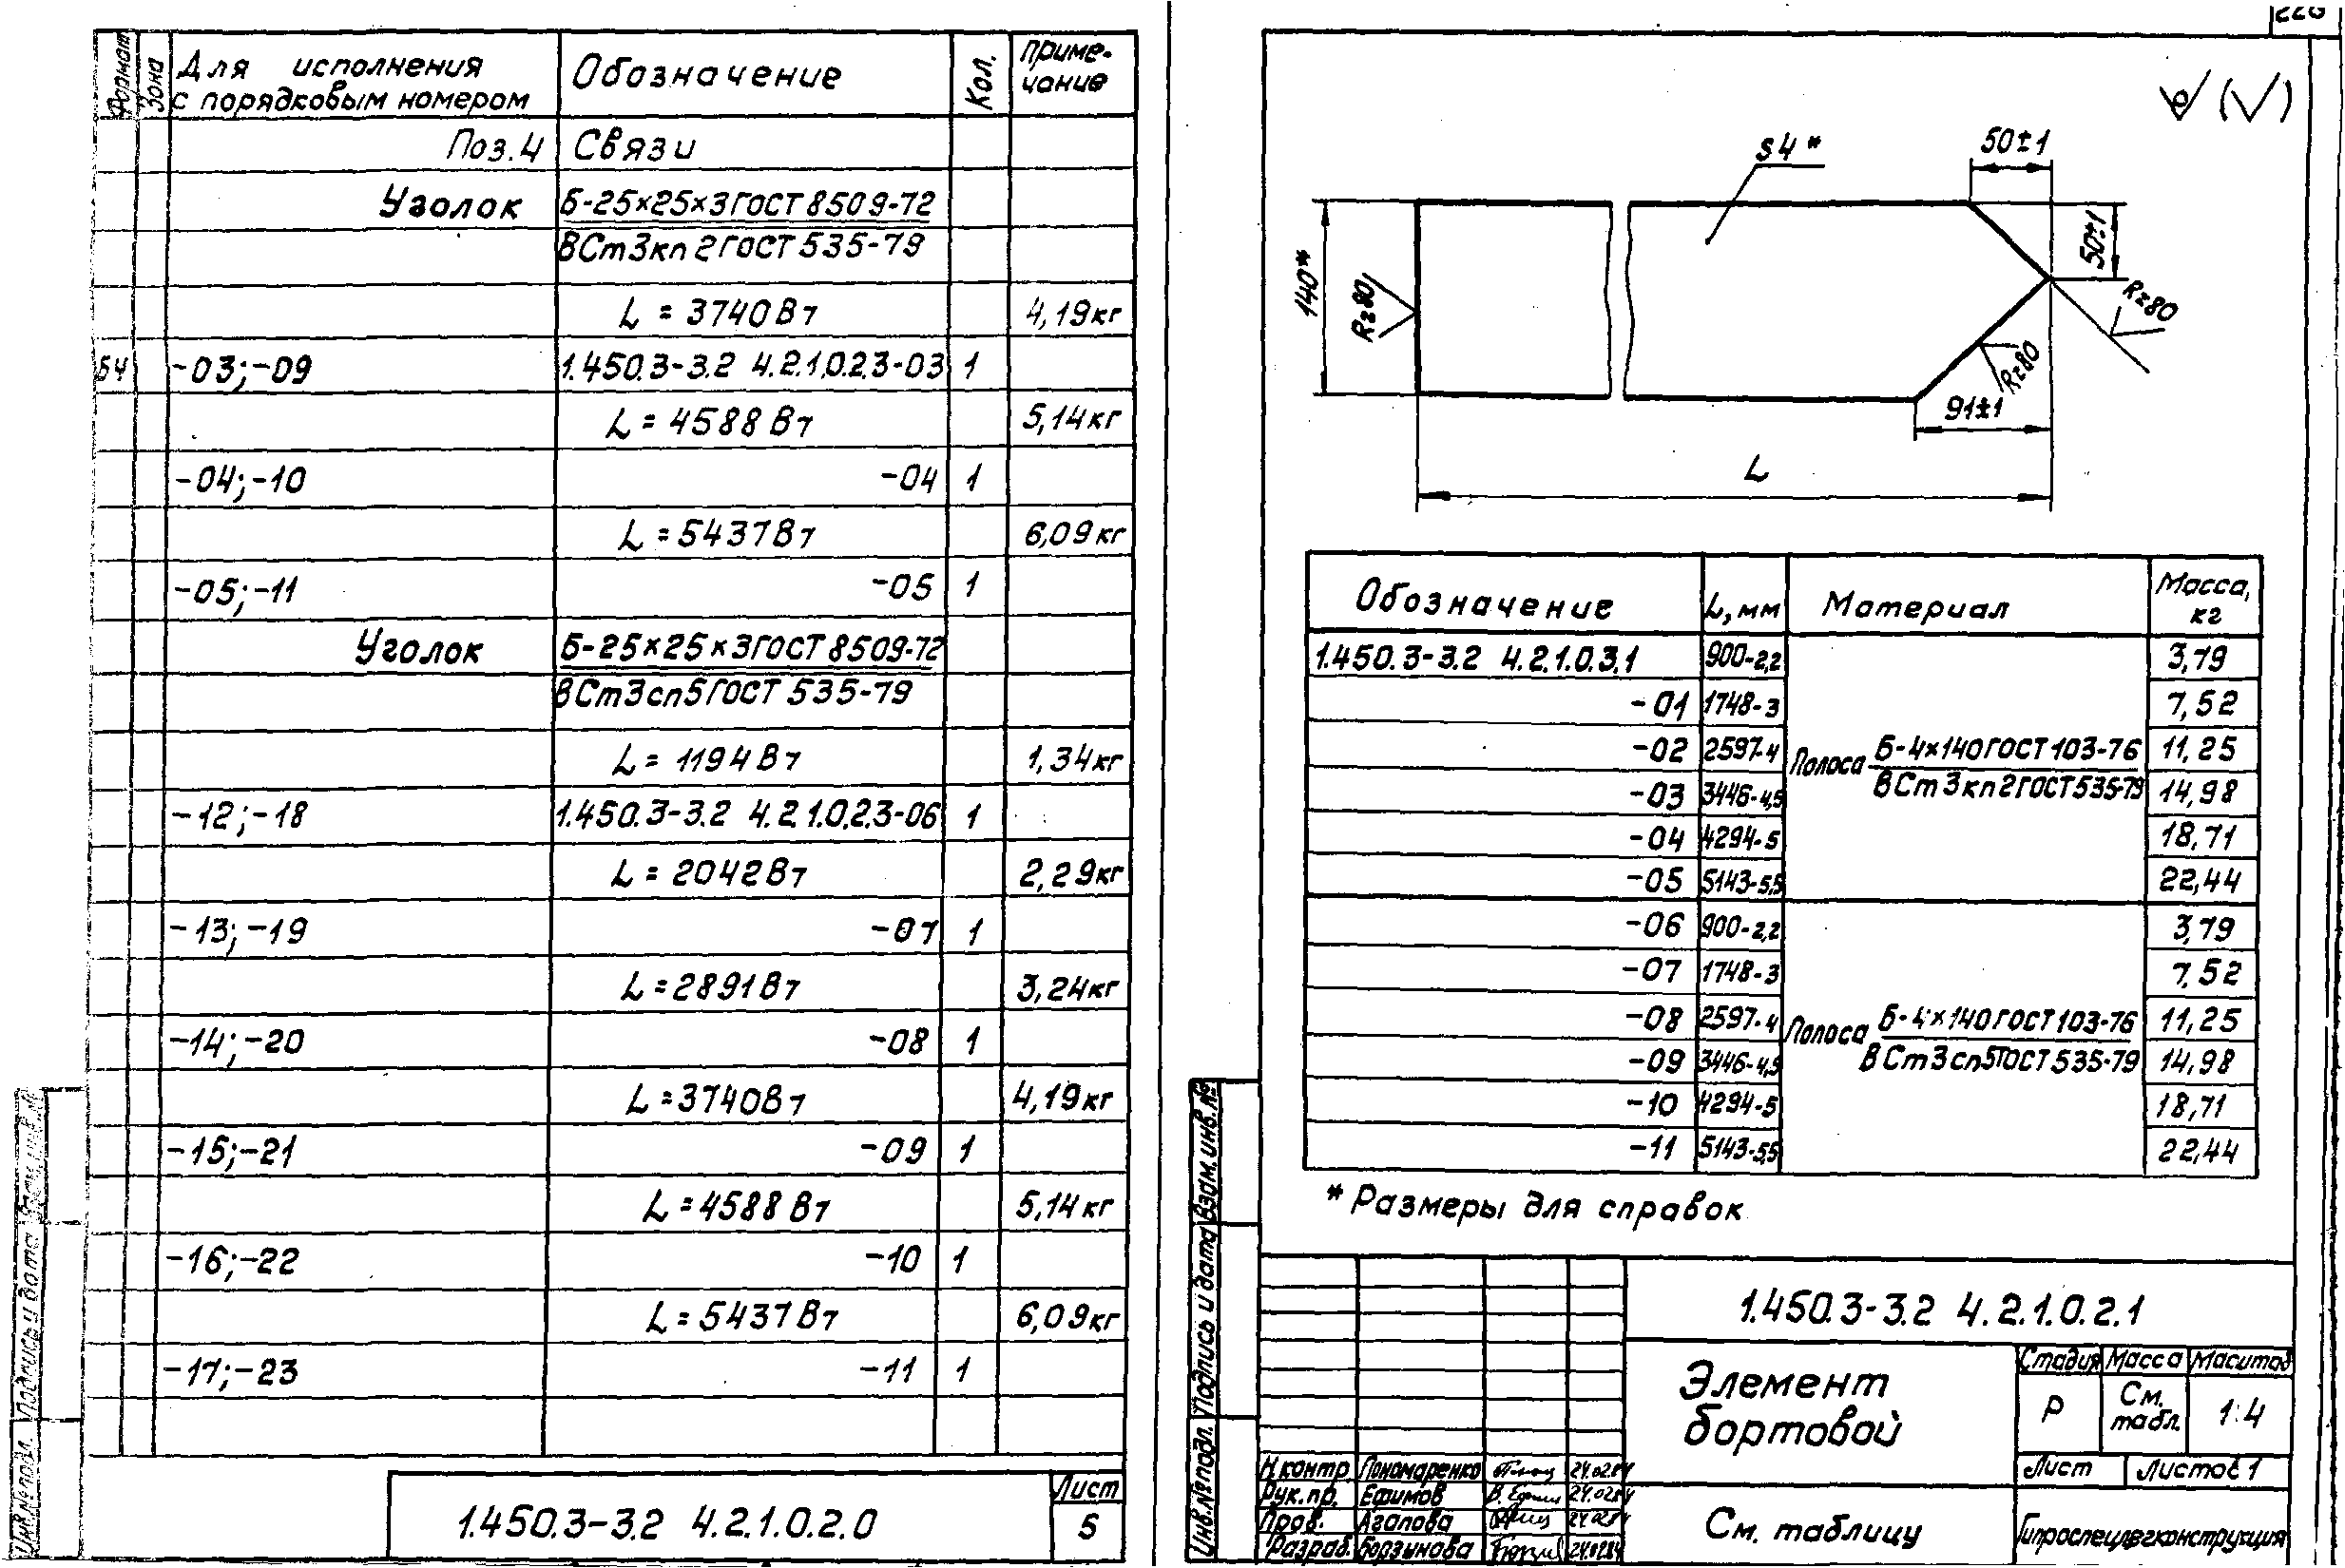 Формат
Зона
Для исполнения
с порядковым номером
Обозначение
Кол.
Приме-
чание
Поз.4 Связи
Уголок Б-25×25×3 ГОСТ 8509-72
ВСт3кп2 ГОСТ 535-79
L = 3740 В7 4,19кг
БЧ -03;-09 1.450.3-3.2 4.2.1.0.2.3-03 1
L = 4588 В7 5,14кг
-04;-10 -04 1
L = 5437 В7 6,09кг
-05;-11 -05 1
Уголок Б-25×25×3 ГОСТ 8509-72
ВСт3сп5 ГОСТ 535-79
L = 1194 В7 1,34кг
-12;-18 1.450.3-3.2 4.2.1.0.2.3-06 1
L = 2042 В7 2,29кг
-13;-19 -07 1
L = 2891 В7 3,24кг
-14;-20 -08 1
L = 3740 В7 4,19кг
-15;-21 -09 1
L = 4588 В7 5,14кг
-16;-22 -10 1
L = 5437 В7 6,09кг
-17;-23 -11 1
Инв.№подл. Подпись и дата Взам.инв.№
1.450.3-3.2 4.2.1.0.2.0
Лист
5
(√)
s4*
50±1
50±1
140*
Rz80
Rz80
Rz80
91±1
L
Обозначение L, мм Материал Масса,
кг
1.450.3-3.2 4.2.1.0.3.1 900-2,2 3,79
-01 1748-3 7,52
-02 2597-4 Полоса Б-4×140 ГОСТ 103-76 11,25
-03 3446-4,5 ВСт3кп2 ГОСТ 535-79 14,98
-04 4294-5 18,71
-05 5143-5,5 22,44
-06 900-2,2 3,79
-07 1748-3 7,52
-08 2597-4 Полоса Б-4×140 ГОСТ 103-76 11,25
-09 3446-4,5 ВСт3сп5 ГОСТ 535-79 14,98
-10 4294-5 18,71
-11 5143-5,5 22,44
* Размеры для справок
Инв.№подл. Подпись и дата Взам.инв.№
1.450.3-3.2 4.2.1.0.2.1
Элемент
бортовой
Стадия Масса Масштаб
Р См.
табл. 1:4
Лист Листов 1
Н.контр. Пономаренко 24.02.84
Рук.пр. Ефимов 24.02.84
Пров. Агапова 24.02.84
Разраб. Борзынова 24.02.84
См. таблицу
Гипроспецлегконструкция